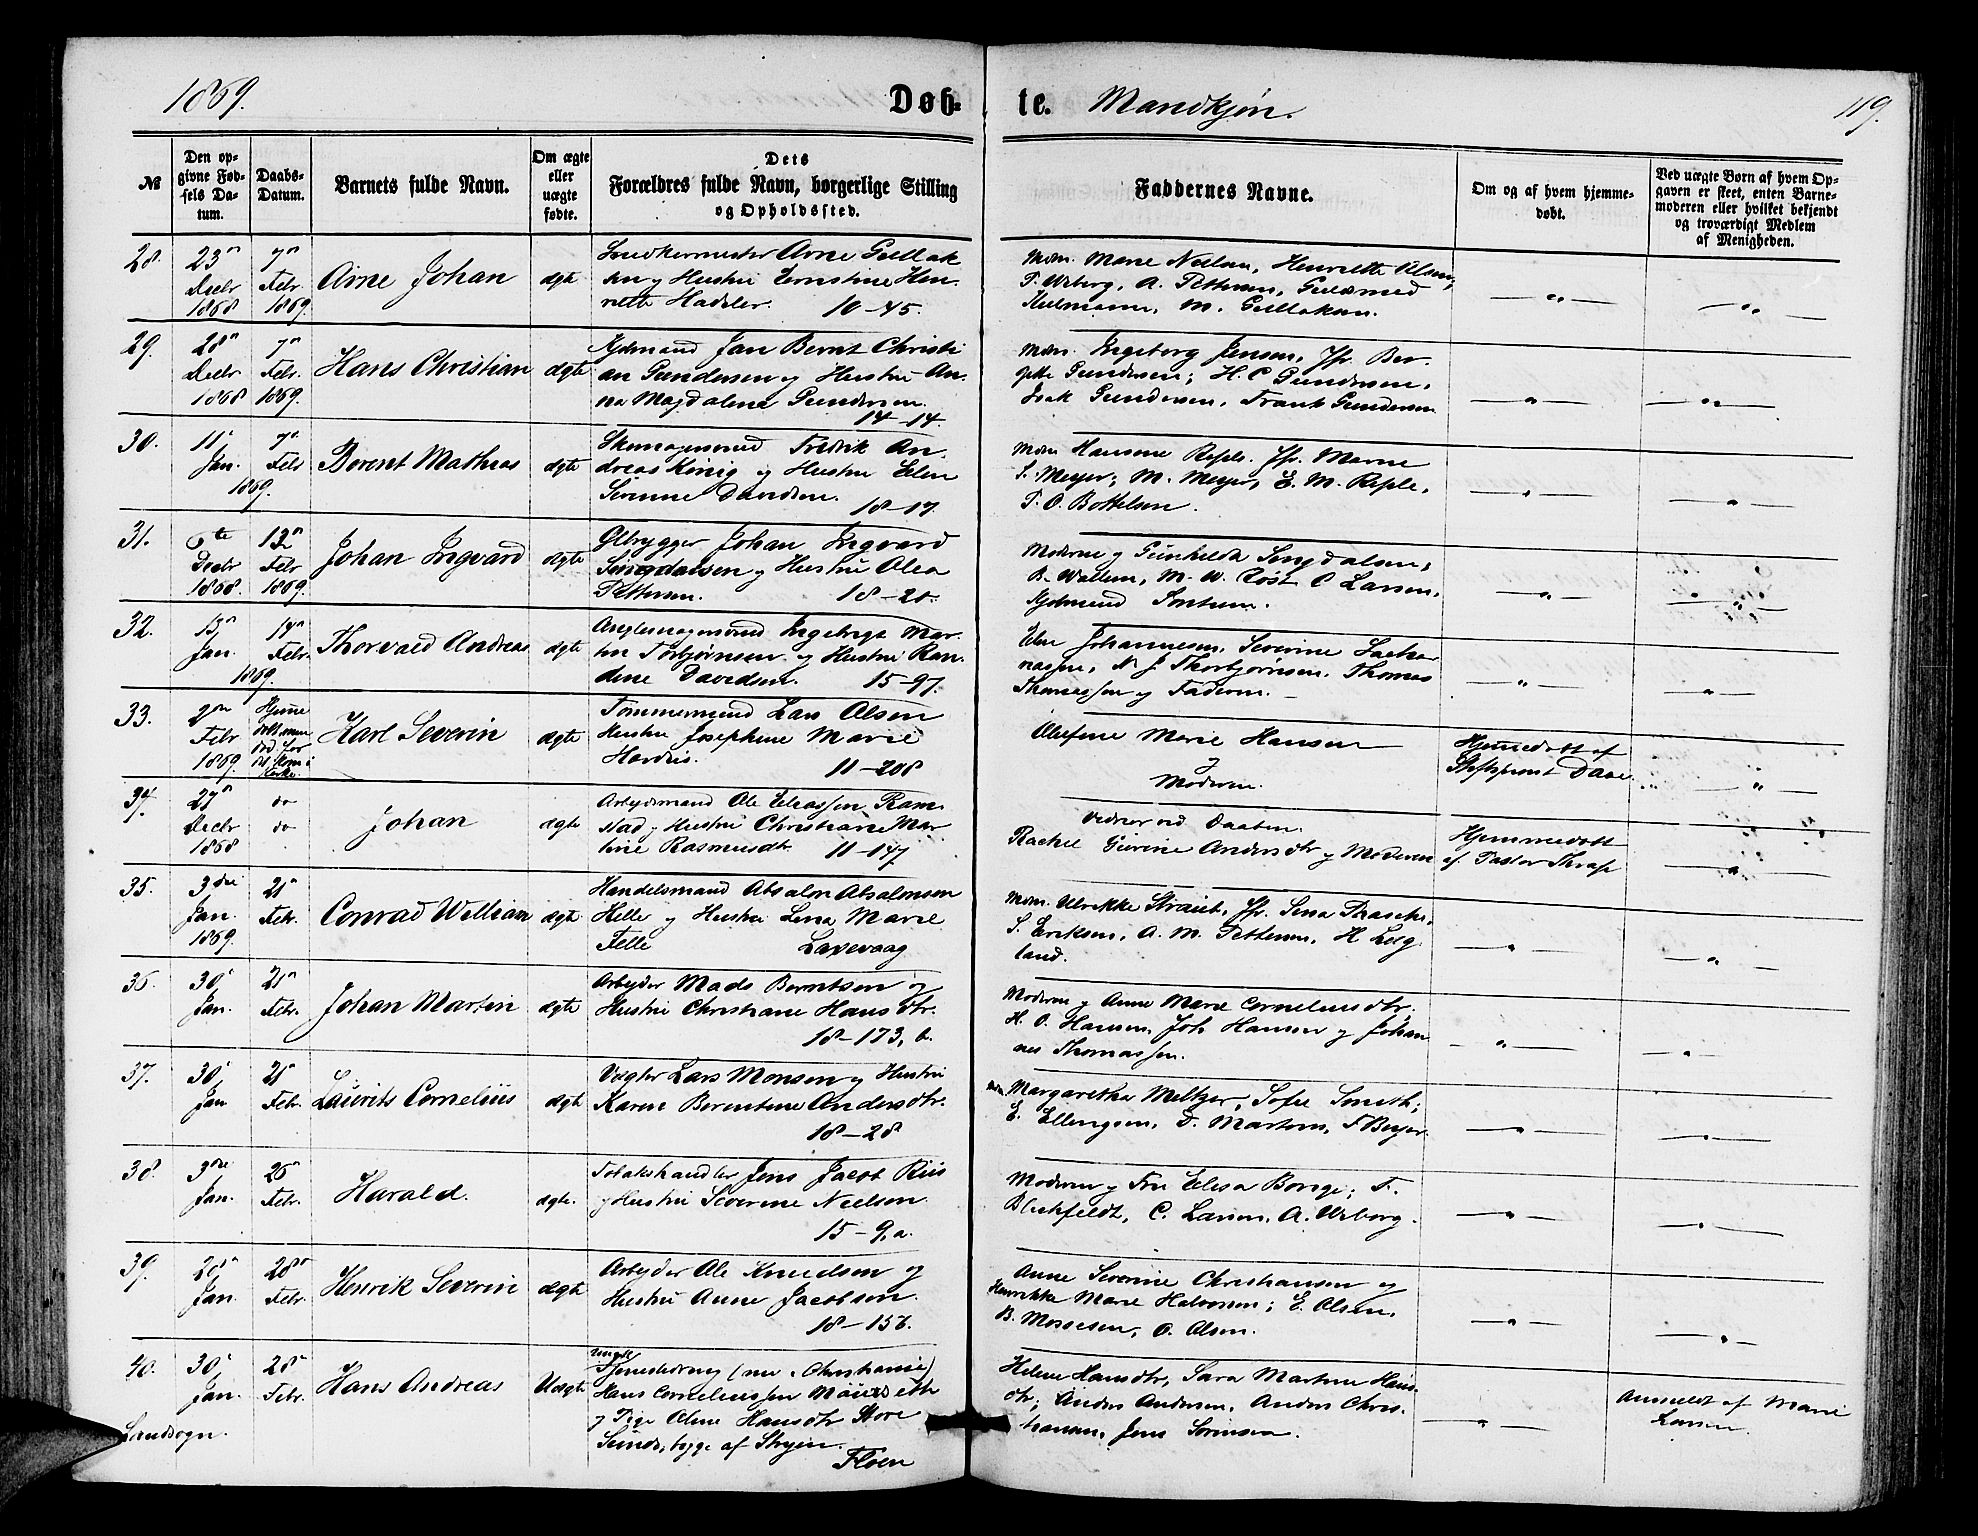 1869.
Døb-
te.
Mandkjøn.
119.
№
Den op-
givne Fød-
sels Da-
tum.
Daabs-
Datum.
Barnets fulde Navn.
Om ægte
eller
uægte
fødte.
Dets
Forældres fulde Navn, borgerlige Stilling
og Opholdssted.
Faddernes Navne.
Om og af hvem hjemme-
døbt.
Ved uægte Børn af hvem Op-
gaven er skeet, enten Barne-
moderen eller hvilket bekjendt
og troværdigt Medlem
af Menigheden.
28.
23
Decbr
1868
7
Febr
1869.
Arne Johan
ægte
Snedkermester Arne Gullak
sen og Hustru Ernstine Hen-
riette Hadeler.
10-45.
Mdm. Marie Nielsen, Henriette Olsen,
T. Wiborg, A. Pettersen,
M. Gullaksen.
29.
28
Decbr
1868
7
Febr.
1869.
Hans Christian
ægte
Jan Bernt Christi
an Gundersen og Hustru An-
na Magdalena Gundersen.
14-14.
Mdm. Ingeborg Jensen, Jfr. Ber-
gitte Gundersen; H. C Gundersen,
Isak Gundersen, Frantz Gundersen
30.
11
Jan.
7
Febr
1869.
Berent Mathias
ægte
Skomagersvend Fredrik An-
dreas König og Hustru Elen
Sevrine Davidsen.
18-17.
Mdm Hansine Reple. Jfr. Marne
S. Meyer; M. Meyer, E. M. Reple,
T. O. Bottelsen.
31.
6te
Decbr
1868.
13
Febr
1869.
Johan Ingvard
ægte
Ølbrygger Johan Ingvard
Songdalsen og Hustru Olea
Pettersen.
18-20.
Moderen og Gunhilda Songdalsen,
B. Wallem, M. W. Röst C Larsen,
32.
13
Jan.
14
Febr.
1869.
Thorvald Andreas
ægte
Ingebrigt Mar-
tin Torbjörnsen og Hustru Ran-
dine Davidsen.
15-97.
Elen Johannesen, Severine Zacha
riasen, N J Thorbjörnsen, Thomas
Thomassen og Faderen.
33.
2den
Febr
1869.
Hjemme
Karl Severin
ægte
Tømmermand Lars Olsen
Hustru Josephine Marie
Hordvis.
11-208
Olufine Marie Hansen
og
Moderen.
Hjemmedøbt af
Stiftsprovst Daae
34.
27
Decbr
1868
do
do
Johan
ægte
Arbeidsmand Ole Eliassen Ram-
stad og Hustru Christiane Mar
tine Rasmusdtr.
11-147
Vidner ved Daaben.
Rachel Gurine Andersdtr og Moderen
Hjemmedøbt
af Pastor Thrap
35.
3die
Jan.
1869.
21
Febr.
Conrad William
ægte
Handelsmand Absalon Absalonsen
Helle og Hustru Lina Marie
Felle
Laxevaag
Mdm. Ulrikke Straut, Jfr. Lena Trasche,
S. Eriksen, A. M. Pettersen, H Leg
land.
36.
30
Jan.
21
Febr.
Johan Martin
ægte
Arbeider Mads Berntsen og
Hustru Christiane Hansdtr.
18-173, b.
Moderen og Anne Marie Corneliusdtr.
H. O. Hansen, Joh Hansen og Johan
nes Thomassen.
37.
30
Jan
21
Febr.
Laurits Cornelius
ægte
Vægter Lars Monsen og Hustru
Karen Berentine Andersdtr.
18-28
Mdm Margaretha Meltzer, Sofie Smith;
E. Ellingsen, D. Martens, F Beyer.
38.
3die
Jan.
26
Febr.
Harald.
ægte.
Tobakshandler Jens Jacob Riis
og Hustru Severine Nielsen
15-9, a.
Moderen og Fru Elisa Borge; F.
Blichfeldt, C. Larsen, A. Wiborg.
39.
20
Jan.
28
Febr.
Henrik Severin
ægte
Arbeider Ole Knudsen og
Hustru Anne Jacobsen.
18-156.
Anne Severine Christiansen og
Henrikke Marie Halvorsen; E. Olsen,
B. Mossesen, O. Olsen.
40.
30
Jan.
28
Febr.
Landsogn.
Hans Andreas
Uægte
ungk
Tjenestedreng (nu i Christiania)
Hans Corneliussen
og Pige Oline Hansdtr Store
Sunde, bygge af Stryen.
Floen
Helene Hansdtr, Sara Martine Hans-
dtr; Anders Andersen, Anders Chris-
tiansen, Jens Sörensen.
Anmeldt af Marie
Larsen